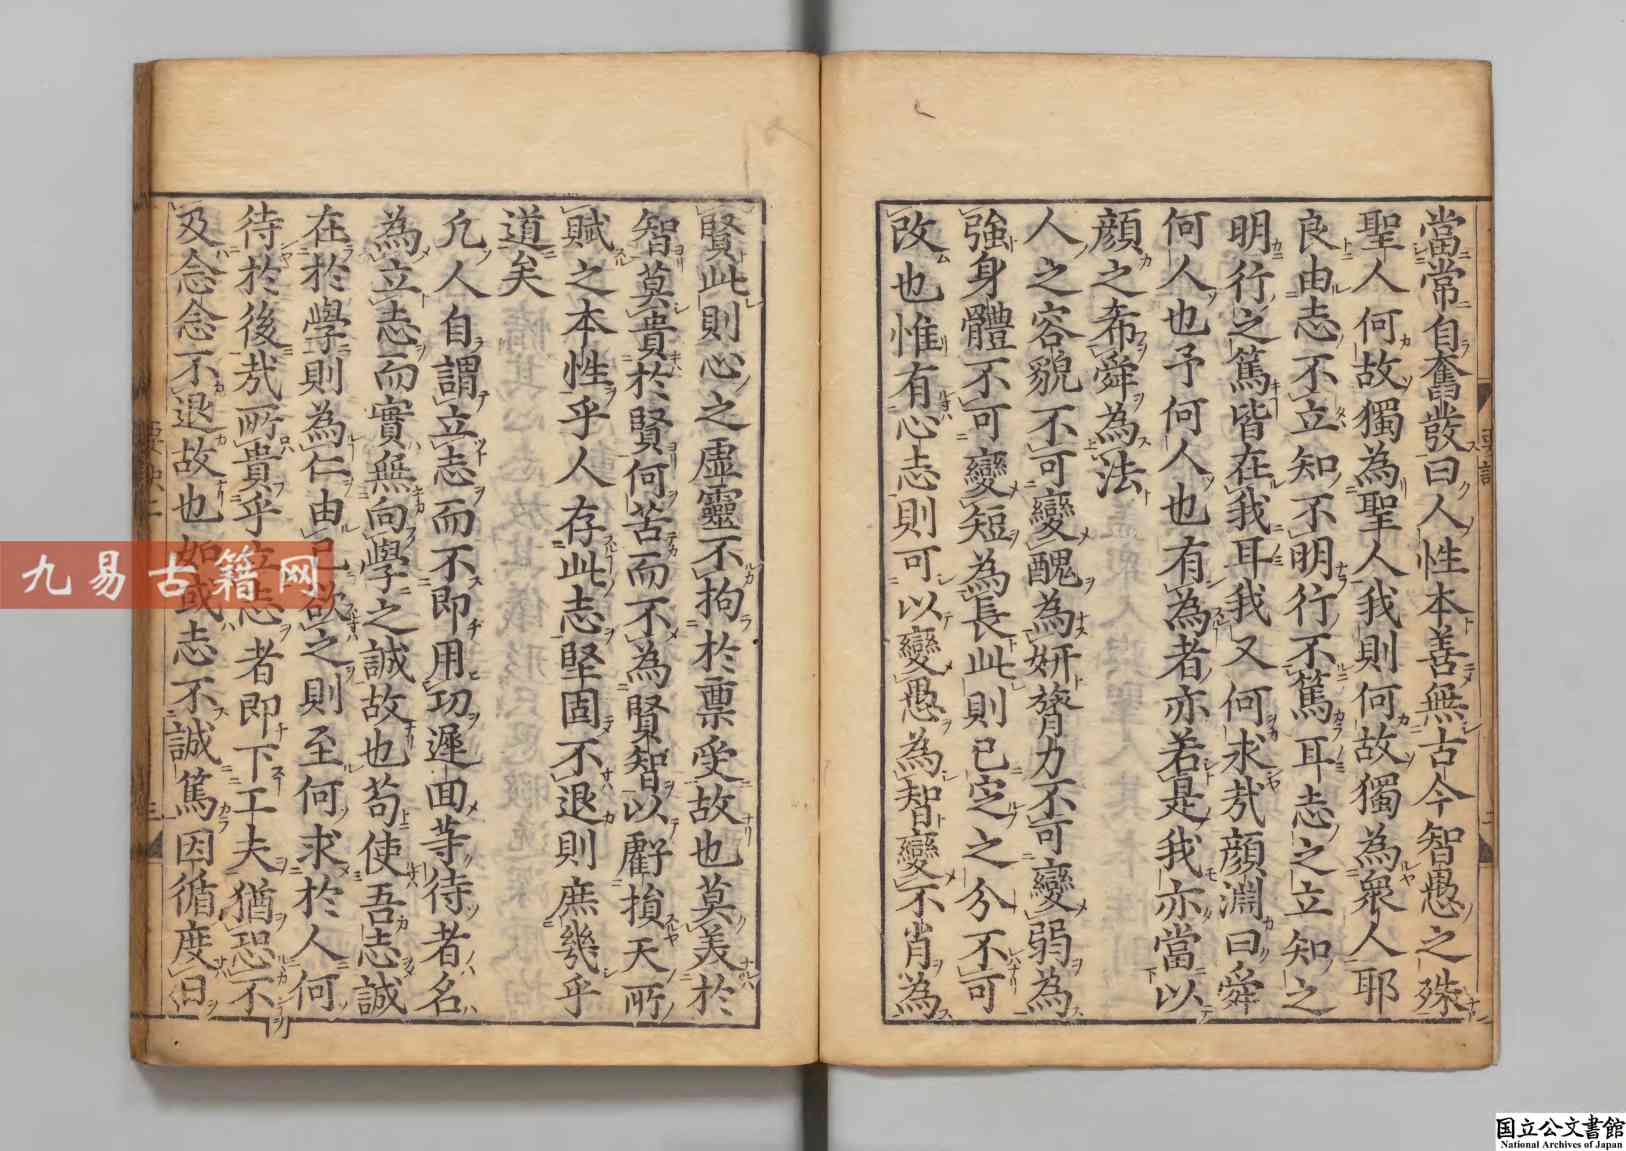 當常自奮發曰人性本善無古今智愚之殊
聖人何故獨為聖人我則何故獨為衆人耶
良由志不立知不明行不篤耳志之立知之
明行之篤皆在我耳我又何求㢤顔淵曰舜
何人也予何人也有為者亦若是我亦當以
顔之希舜為法
人之容貌不可變醜為妍膂力不可變弱為
強身體不可變短為長此則已㝎之分不可
改也惟有心志則可以變愚為智變不肖為
賢此則心之虚靈不拘於稟受故也莫美於
智莫貴於賢何苦而不為賢智以虧損天所
賦之本性乎人存此志堅固不退則庶幾乎
道矣
凢人自謂立志而不即用功遲囬等待者名
為立志而實無向學之誠故也苟使吾志誠
在於學則為仁由己欲之則至何求於人何
待於後㢤所貴乎立志者即下工夫猶恐不
及念念不退故也如或志不誠篤因循度日
要訣
二
三
九易古籍网
国立公文書館
National Archives of Japan